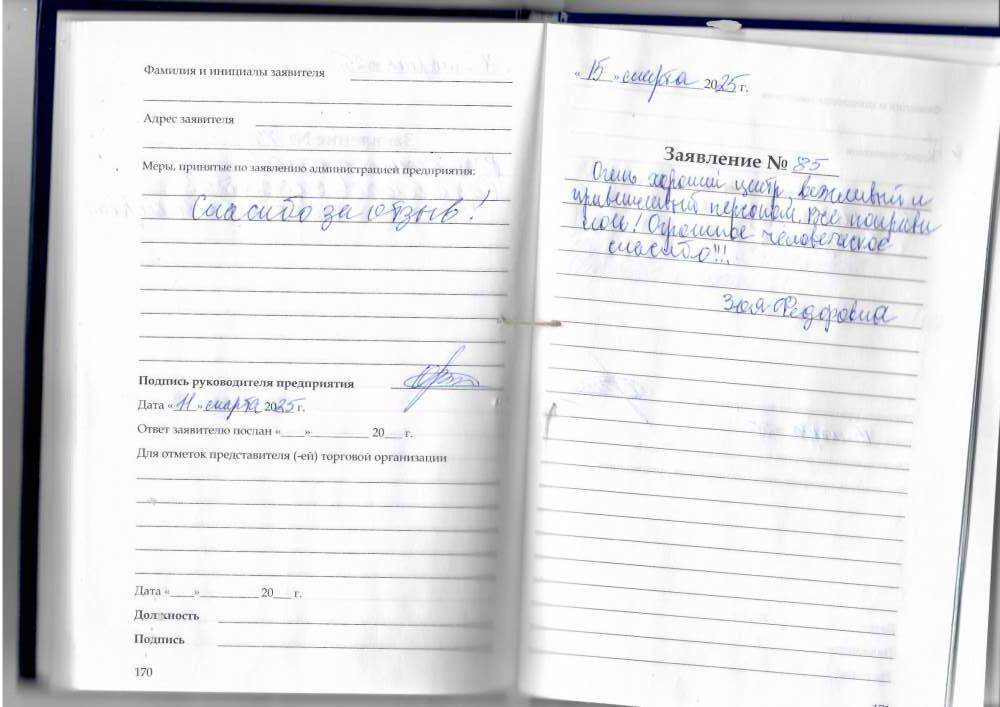 Фамилия и инициалы заявителя
Адрес заявителя
Меры, принятые по заявлению администрацией предприятия:
Спасибо за отзыв!
Подпись руководителя предприятия
Дата «11» марта 2025 г.
Ответ заявителю послан «____»__________ 20___ г.
Для отметок представителя (-ей) торговой организации
Дата «____»__________ 20___ г.
Должность
Подпись
170
«15» марта 2025 г.
Заявление № 85
Очень хороший центр, вежливый и
приветливый персонал. Все понрави
лось! Огромное человеческое
спасибо!!!
Зоя Федоровна